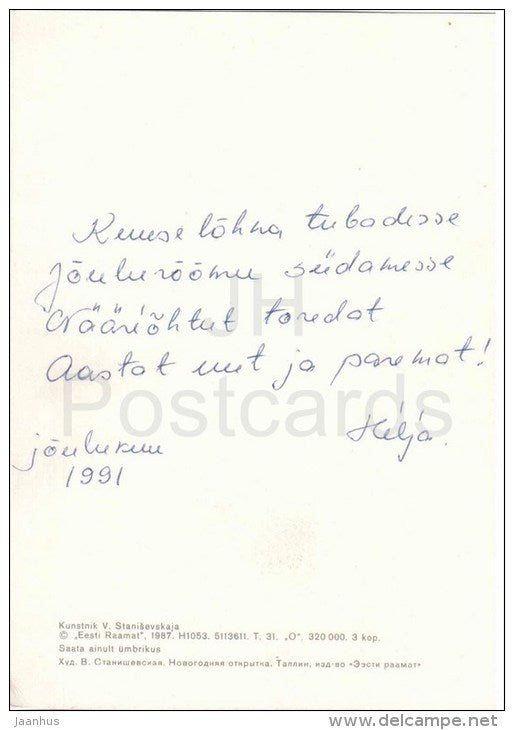 Kuuse lõhna tubadesse
Jõulurõõmu südamesse
Nääriõhtut toredat
Aastat uut ja paremat!
Hilja.
jõulukuu
1991
JH
Postcards
Kunstnik V. Staniševskaja
© „Eesti Raamat", 1987. H1053. 5113611. T. 31. „O". 320 000. 3 kop.
Saata ainult ümbrikus
Худ. В. Станишевская. Новогодняя открытка. Таллин, изд-во «Ээсти раамат»
jaanhus
www.delcampe.net